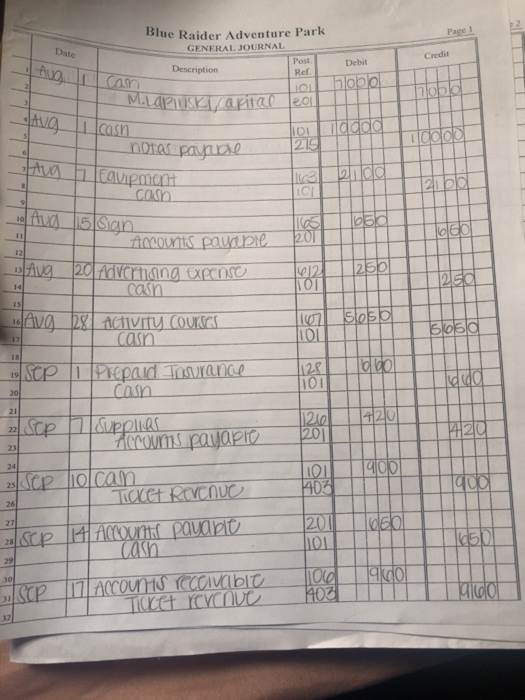 Blue Raider Adventure Park
GENERAL JOURNAL
Page 1
Date Description Post. Ref. Debit Credit
1 Aug 1 Cash 101 7000
2 M. Lapinski, Capital 301 7000
3
4 Aug 1 cash 101 10000
5 notes payable 275 10000
6
7 Aug 7 Equipment 163 2100
8 cash 101 2100
9
10 Aug 15 Sign 165 650
11 Accounts payable 201 650
12
13 Aug 20 Advertising expense 612 250
14 cash 101 250
15
16 Aug 28 Activity Courses 167 5650
17 cash 101 5650
18
19 Sep 1 Prepaid Insurance 128 660
20 Cash 101 660
21
22 Sep 7 Supplies 126 420
23 Accounts payable 201 420
24
25 Sep 10 Cash 101 900
26 Ticket Revenue 403 900
27
28 Sep 14 Accounts payable 201 650
29 Cash 101 650
30
31 Sep 17 Accounts receivable 106 960
32 Ticket revenue 403 960